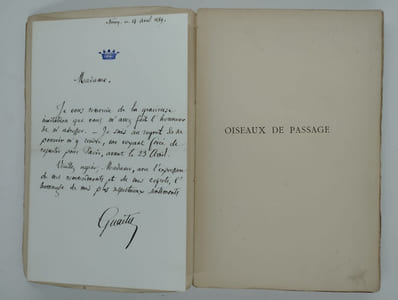 Nancy, ce 17 Avril 1889.
Madame,
Je vous remercie de la gracieuse
invitation que vous m'avez fait l'honneur
de m'adresser. — Je suis au regret de ne
pouvoir m'y rendre, me voyant forcé de
repartir pour Paris, avant le 23 Avril.
Veuillez agréer, Madame, avec l'expression
de mes remerciements et de mes regrets, l'
hommage de mes plus respectueux sentiments
Guaita
OISEAUX DE PASSAGE